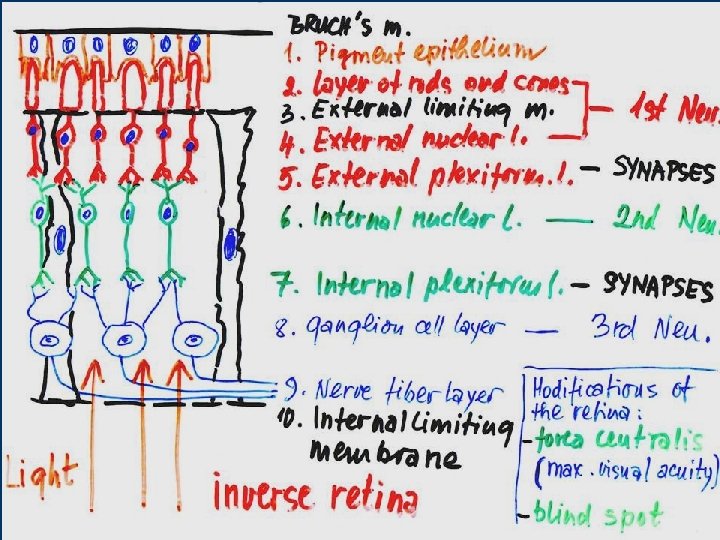 BRUCH'S m.
1. Pigment epithelium
2. layer of rods and cones
3. External limiting m.
1st Neu.
4. External nuclear l.
5. External plexiform. l. - SYNAPSES
6. Internal nuclear l. — 2nd Neu.
7. Internal plexiform l. - SYNAPSES
8. ganglion cell layer — 3rd Neu.
9. Nerve fiber layer
10. Internal Limiting
membrane
Modifications of
the retina:
- fovea centralis
(max. visual acuity)
- blind spot
Light
inverse retina